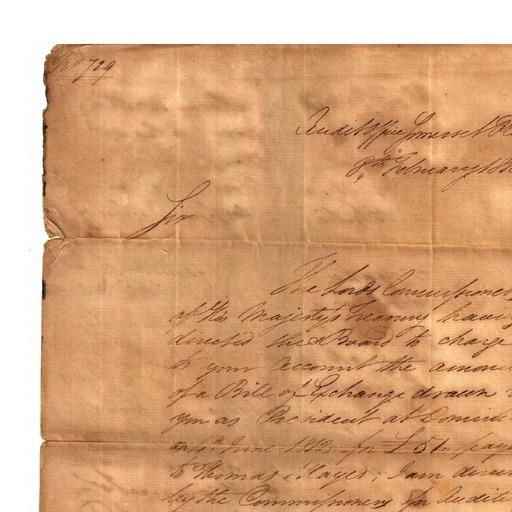 No 729
Audit Office Somerset
8th February
Sir
The Lords Commissioners
of His Majesty's Treasury having
directed the Board to charge
to your Account the amount
of a Bill of Exchange drawn
you as President at
June for £ 51
to Thomas Hayes; I am
by the Commissioners for Auditing